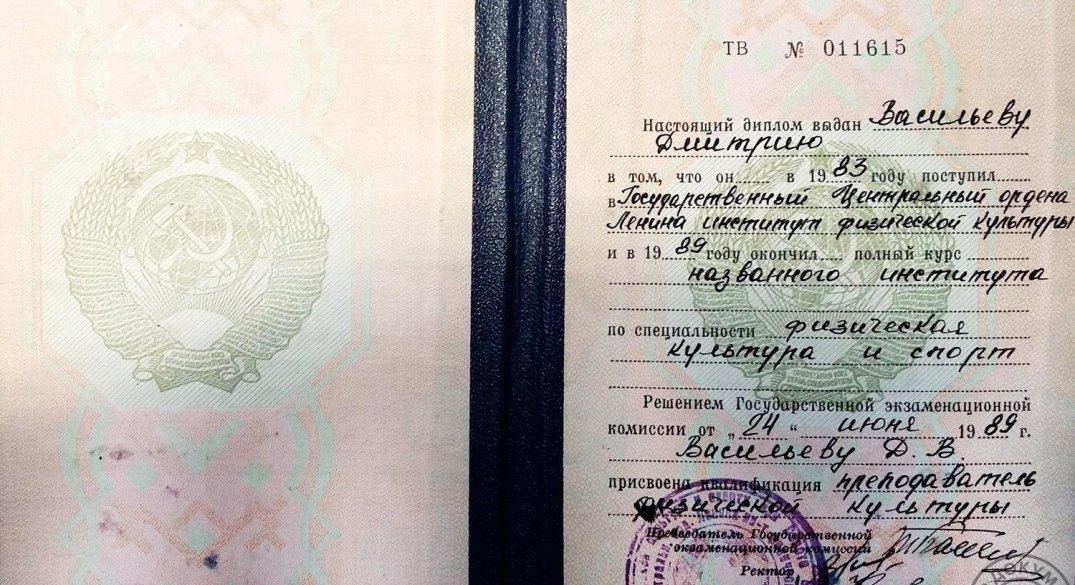 ТВ № 011615
Настоящий диплом выдан Васильеву
Дмитрию
в том, что он в 1983 году поступил
в Государственный Центральный ордена
Ленина институт физической культуры
и в 1989 году окончил полный курс
названного института
по специальности физическая
культура и спорт
Решением Государственной экзаменационной
комиссии от „24“ июня 1989 г.
Васильеву Д. В.
присвоена квалификация преподаватель
физической культуры
Председатель Государственной
экзаменационной комиссии
Ректор